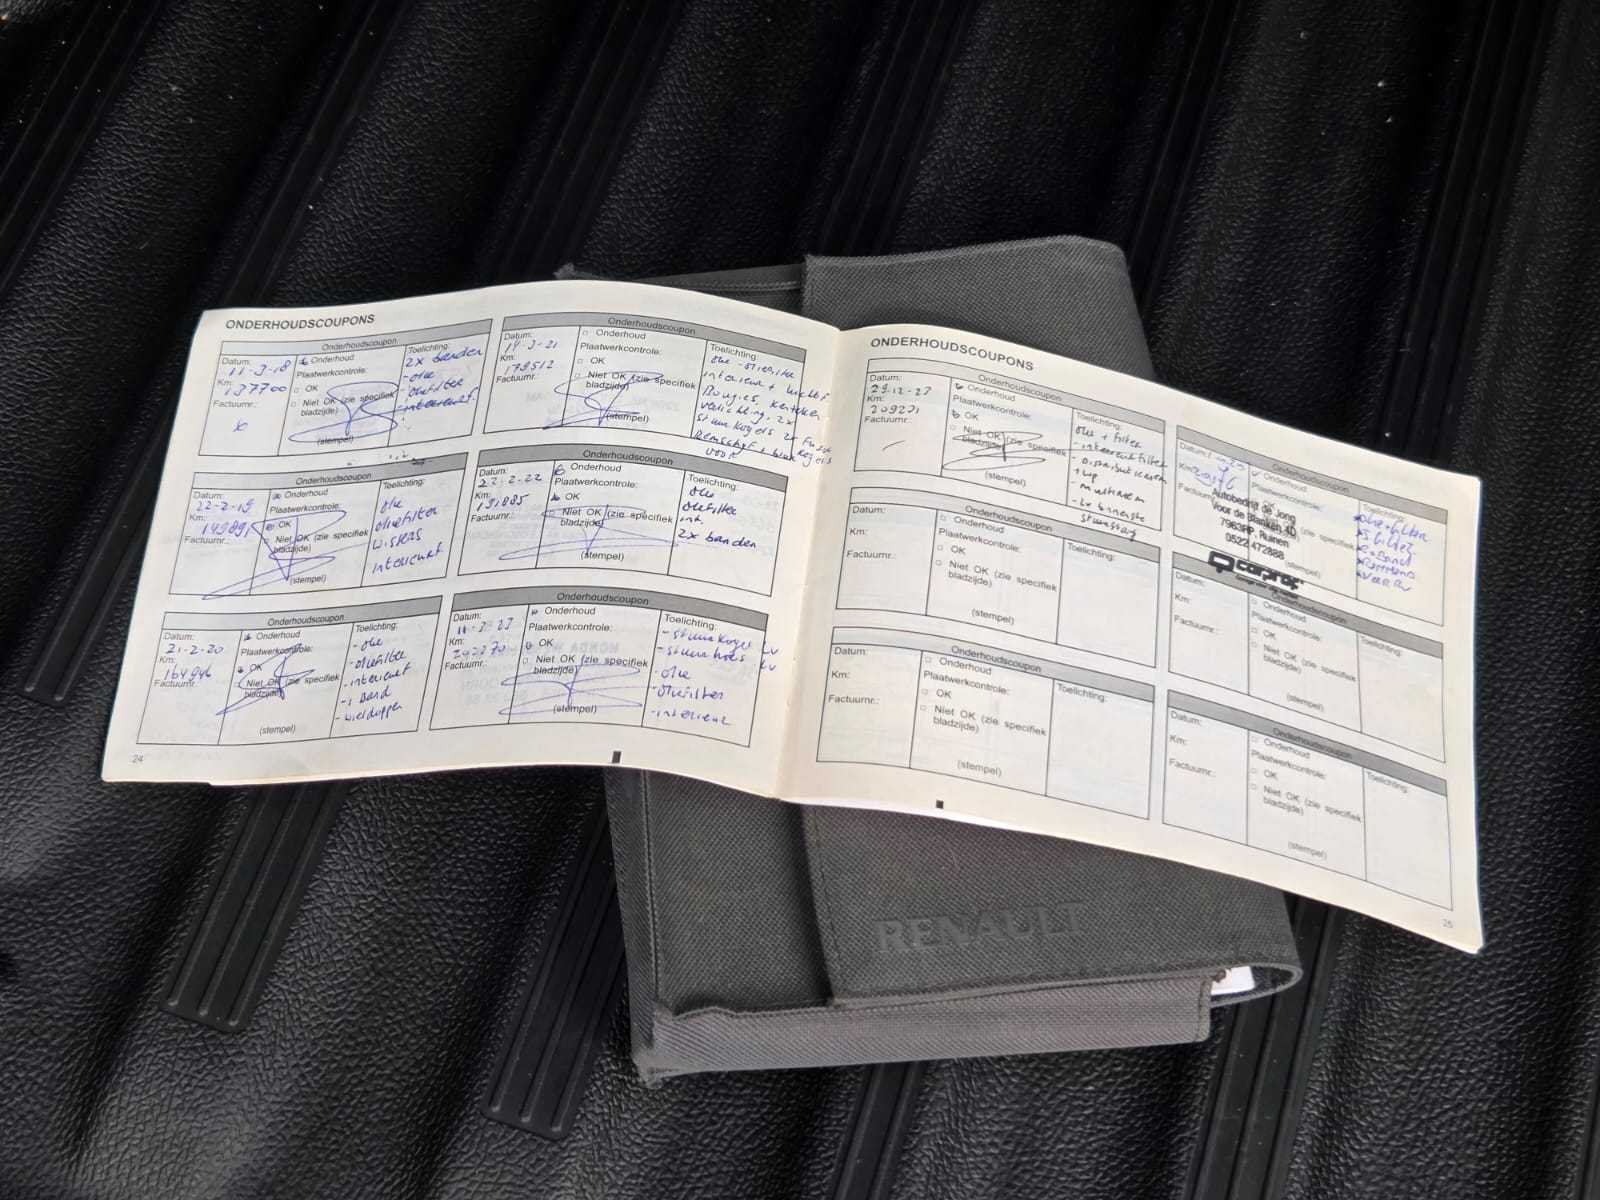 ONDERHOUDSCOUPONS
Onderhoudscoupon
Datum:
11-3-18
Km:
137700
Factuurnr.:
Onderhoud
Plaatwerkcontrole:
OK
Niet OK (zie specifiek
bladzijde)
(stempel)
Toelichting:
2x banden
- olie
- oliefilter
- interieurf.
Onderhoudscoupon
Datum:
22-2-19
Km:
149891
Factuurnr.:
Onderhoud
Plaatwerkcontrole:
OK
Niet OK (zie specifiek
bladzijde)
(stempel)
Toelichting:
olie
oliefilter
wissers
interieur
Onderhoudscoupon
Datum:
21-2-20
Km:
164946
Factuurnr.:
Onderhoud
Plaatwerkcontrole:
OK
Niet OK (zie specifiek
bladzijde)
(stempel)
Toelichting:
- olie
- oliefilter
- interieur
- 1 band
- wieldoppen
24
Onderhoudscoupon
Datum:
14-3-21
Km:
179512
Factuurnr.:
Onderhoud
Plaatwerkcontrole:
OK
Niet OK (zie specifiek
bladzijde)
(stempel)
Toelichting:
olie - oliefilter
interieur + luchtf
Bougies, kenteken
verlichting, 2x
stuurkogels 2x fusee
kogels
Remschijf + blok
voor
Onderhoudscoupon
Datum:
22-2-22
Km:
191885
Factuurnr.:
Onderhoud
Plaatwerkcontrole:
OK
Niet OK (zie specifiek
bladzijde)
(stempel)
Toelichting:
olie
oliefilter
int.
2x banden
Onderhoudscoupon
Datum:
11-3-23
Km:
Factuurnr.:
Onderhoud
Plaatwerkcontrole:
OK
Niet OK (zie specifiek
bladzijde)
(stempel)
Toelichting:
- stuurkogel LV
- stuurhoes LV
- olie
- oliefilter
- interieur
ONDERHOUDSCOUPONS
Onderhoudscoupon
Datum:
29-12-23
Km:
209221
Factuurnr.:
Onderhoud
Plaatwerkcontrole:
OK
Niet OK (zie specifiek
bladzijde)
(stempel)
Toelichting:
olie + filter
- interieurfilter
- distributieriem
+ wp
- multiriem
- LV binnenste
stuurstang
Onderhoudscoupon
Datum:
Km:
Factuurnr.:
Onderhoud
Plaatwerkcontrole:
OK
Niet OK (zie specifiek
bladzijde)
(stempel)
Toelichting:
Onderhoudscoupon
Datum:
Km:
Factuurnr.:
Onderhoud
Plaatwerkcontrole:
OK
Niet OK (zie specifiek
bladzijde)
(stempel)
Toelichting:
Onderhoudscoupon
Datum:
Km:
Onderhoud
Plaatwerkcontrole:
Autobedrijf de Jong
Voor de Blanken 4D
7963RP Ruinen
0522 472888
carprof
(stempel)
Toelichting:
olie + filter
Onderhoudscoupon
Datum:
Km:
Factuurnr.:
Onderhoud
Plaatwerkcontrole:
OK
Niet OK (zie specifiek
bladzijde)
(stempel)
Toelichting:
Onderhoudscoupon
Datum:
Km:
Factuurnr.:
Onderhoud
Plaatwerkcontrole:
OK
Niet OK (zie specifiek
bladzijde)
(stempel)
Toelichting:
25
RENAULT